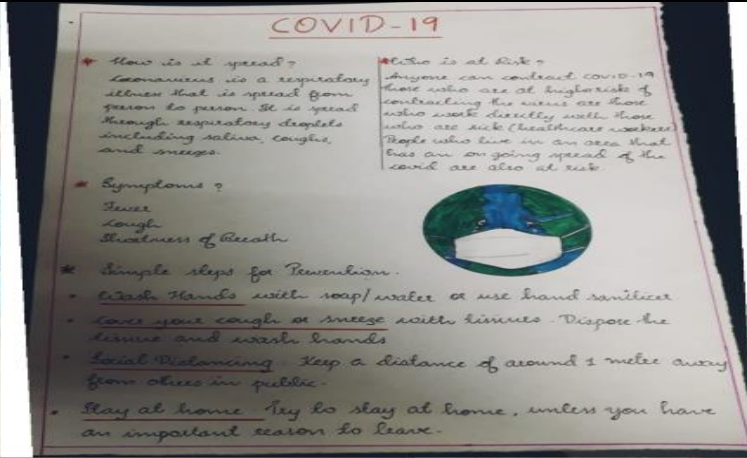 COVID-19
* How is it spread?
Coronavirus is a respiratory
illness that is spread from
person to person. It is spread
through respiratory droplets
including saliva, coughs,
and sneezes.
* Who is at Risk?
Anyone can contract COVID-19
those who are at higher risk of
contracting the virus are those
who work directly with those
who are sick (healthcare workers)
People who live in an area that
has an on going spread of the
covid are also at risk.
* Symptoms?
Fever
Cough
Shortness of Breath
* Simple steps for Prevention.
• Wash Hands with soap/water or use hand sanitizer
• Cover your cough or sneeze with tissues. Dispose the
tissue and wash hands
• Social Distancing. Keep a distance of around 1 metre away
from others in public.
• Stay at home. Try to stay at home, unless you have
an important reason to leave.